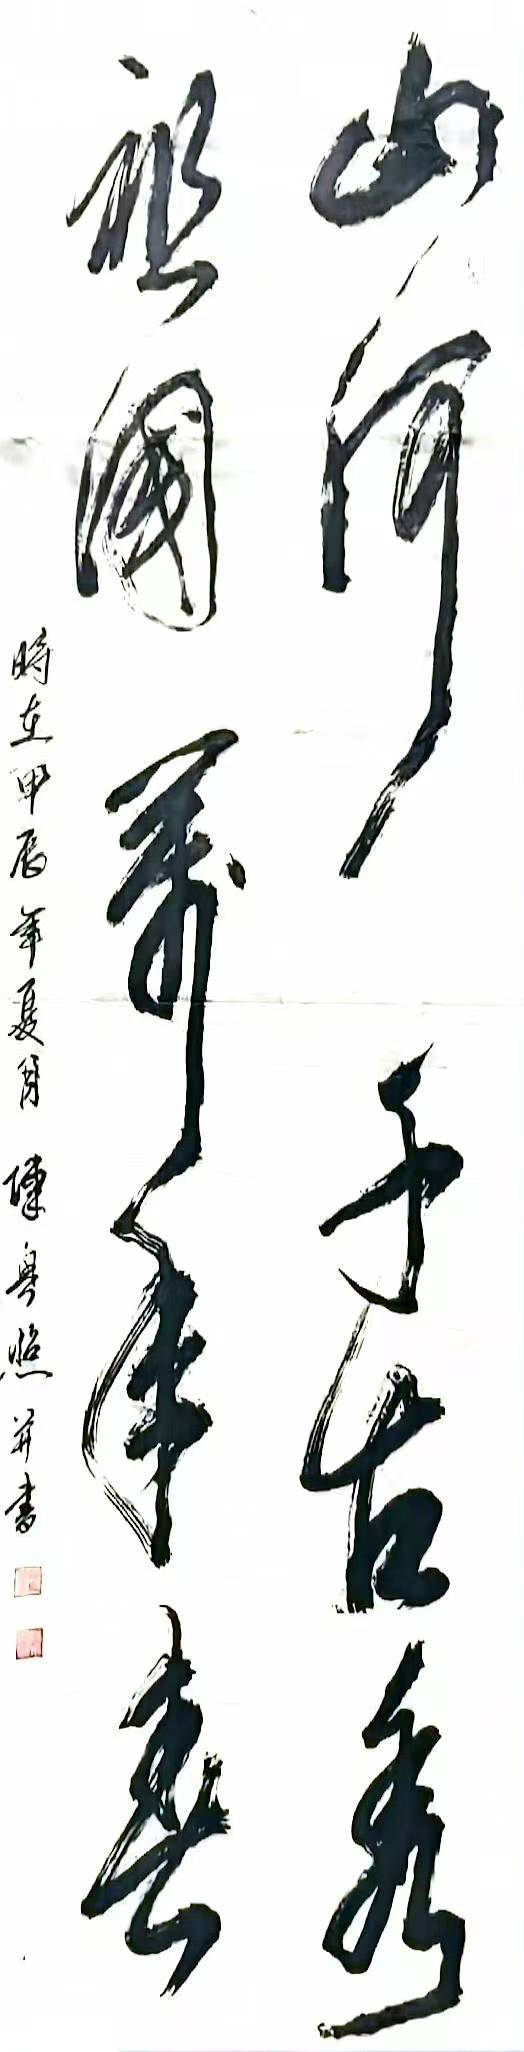 山河千古秀
祖国萬年春
時在甲辰年夏月 陳粤照并書